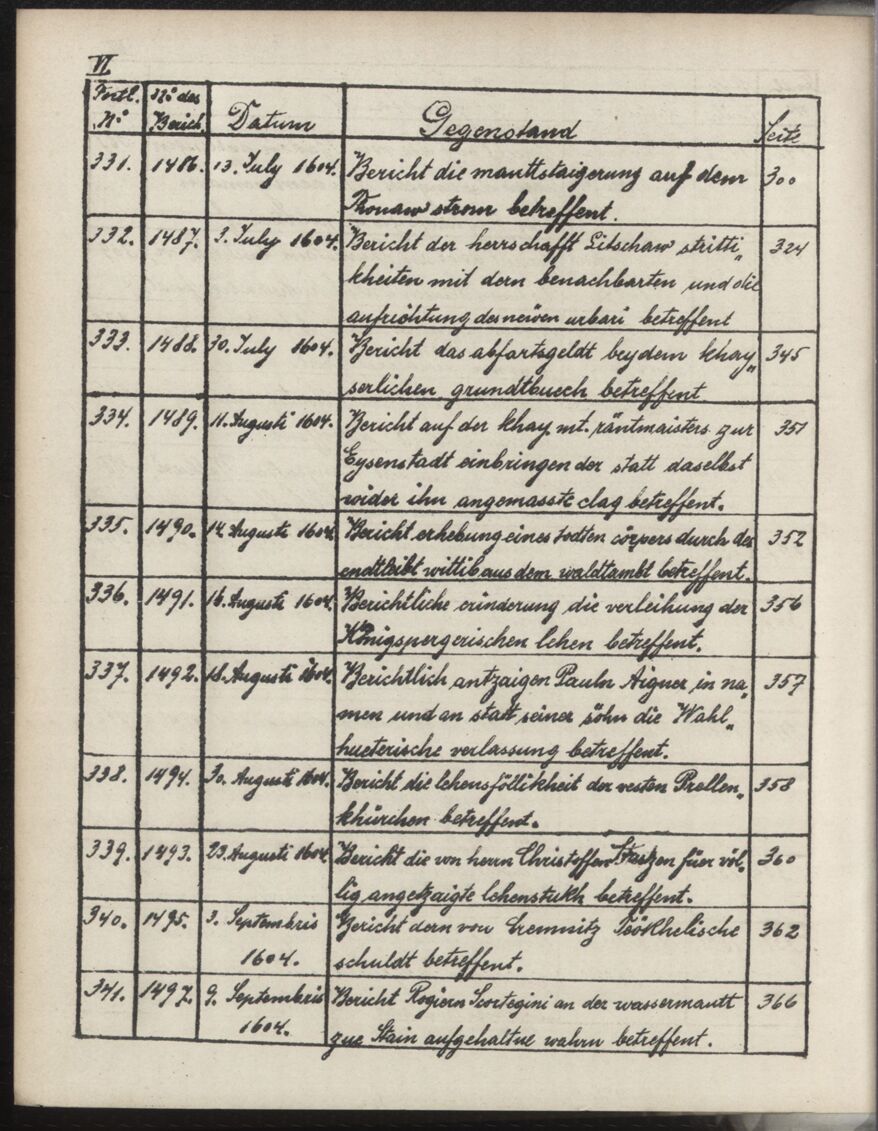 VI
Fortl. No | No des Berich. | Datum | Gegenstand | Seite
331. | 1486. | 13. July 1604. | Bericht die mauttstaigerung auf dem | 300
Thonaw strom betreffent.
332. | 1487. | 3. July 1604. | Bericht der herrschafft Litschaw stritti„ | 324
kheiten mit dem benachbarten und die
aufrichtung des neuen urbari betreffent
333. | 1488. | 30. July 1604. | Bericht das abfartsgeldt bey dem khay„ | 345
serlichen grundtbuech betreffent.
334. | 1489. | 11. Augusti 1604. | Bericht auf der khay. mt. räntmaisters zur | 351
Eysenstadt einbringen der statt daselbst
wider ihn angemasste clag betreffent.
335. | 1490. | 14. Augusti 1604. | Bericht erhebung eines todten cörpers durch der | 352
endtleibt wittib aus dem waldtambt betreffent.
336. | 1491. | 16. Augusti 1604. | Berichtliche erinderung die verleihung der | 356
Königspergerischen lehen betreffent.
337. | 1492. | 18. Augusti 1604. | Berichtlich antzaigen Pauln Aigner in na„ | 357
men und an statt seiner söhn die Wahl„
hueterische verlassung betreffent.
338. | 1494. | 30. Augusti 1604. | Bericht die lehensföllikheit der vesten Prellen„ | 358
khürchen betreffent.
339. | 1493. | 23. Augusti 1604. | Bericht die von herrn Christoffen füer völ„ | 360
lig angetzaigte lehenstukh betreffent.
340. | 1495. | 3. Septembris | Bericht dern von Cremnitz Teökhelische | 362
1604. | schuldt betreffent.
341. | 1497. | 9. Septembris | Bericht Rogiern Scortegini an der wassermautt | 366
1604. | zue Stain aufgehaltne wahrn betreffent.